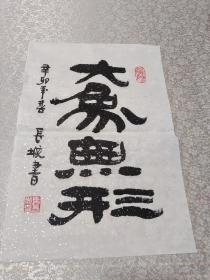 大象無形
辛卯年春
長坡書